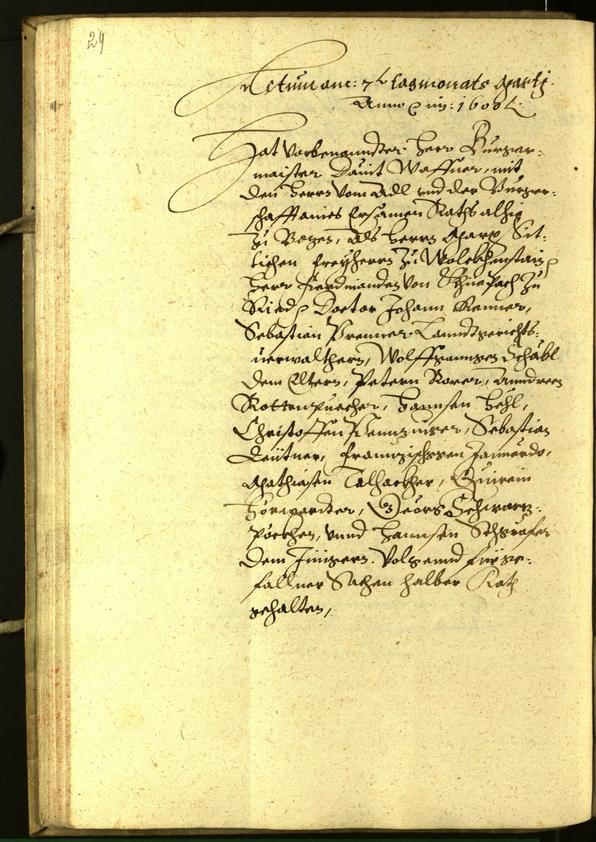 29
Actum am: 7t tag monats Martÿ.
Anno p im: 1608 t.
Hat Vorbenanndter Herr Burger-
maister Dauit Waffner, mit
den Herrn vom Adl vnd der Burger-
schafft aines Ersamen Raths alhie
zu Bozen, als Herrn Marx Sit-
tichen Freyherrn zu Wolckhenstain,
Herr Ferdinanden von Khüepach zu
Ried, Doctor Johann Renner,
Sebastian Prenner Lanndtgerichts-
uerwalthern, Wolffganngen Schäbl
dem Eltern, Petern Rorer, Anndreen
Rottenpuecher, Hannsen Hehl,
Christoffen Sebastian
Leütner, Franzischgen
Mathiasen Talhackher, Quirein
Hörwardter, Georg Schwarz-
pöckhen, vnnd Hannsen
dem Jüngern. Volgennd fürge-
fallner Sachen halber Rath
gehalten,